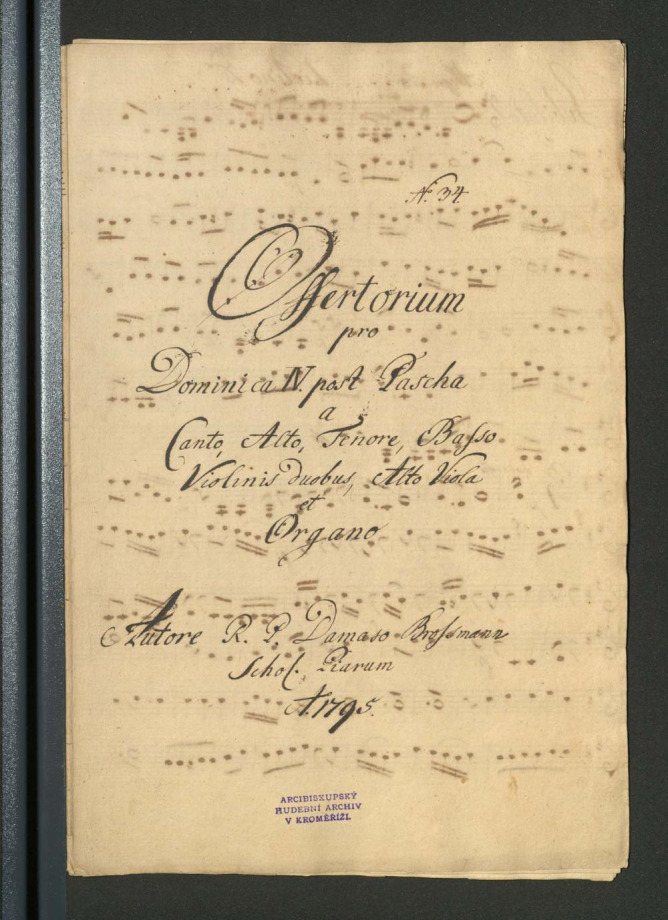 No. 34.
Offertorium
pro
Dominica IV. post Pascha
a
Canto, Alto, Tenore, Baſso
Violinis duobus, Alto Viola
et
Organo
Autore R. P. Damaso Broſsmann
Schol. Piarum
A. 1795.
ARCIBISKUPSKÝ
HUDEBNÍ ARCHIV
V KROMĚŘÍŽI.